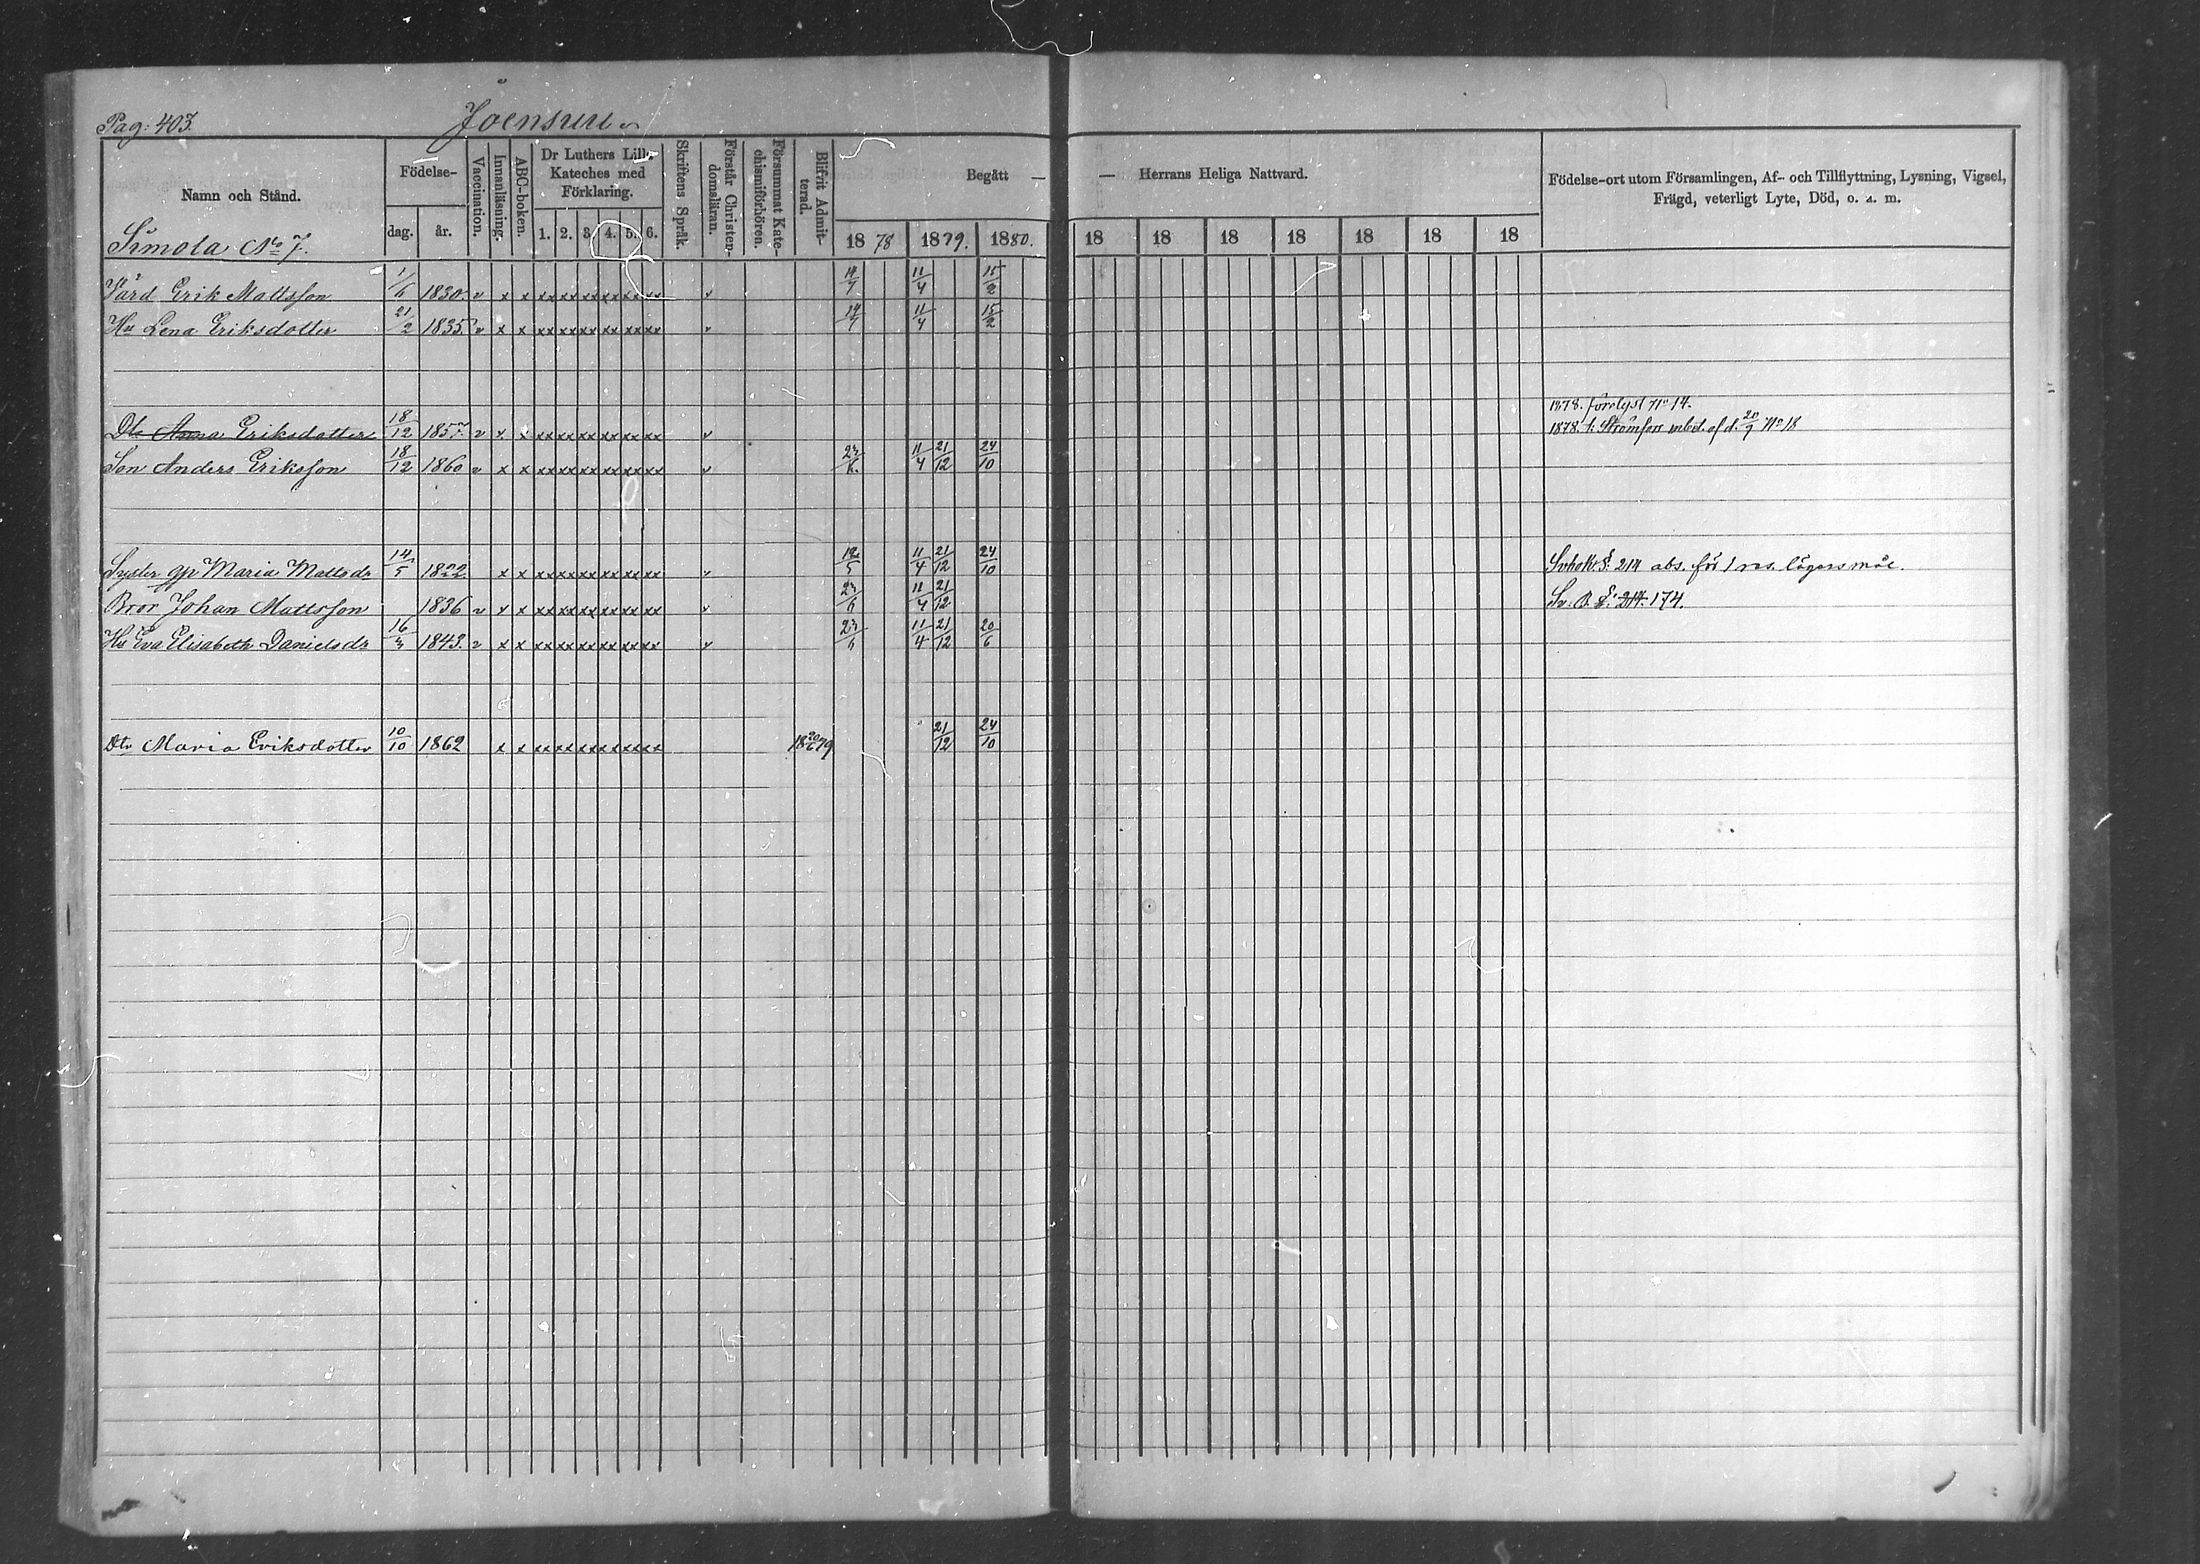 Pag: 403.
Joensuu
Namn och Stånd.
Födelse-
dag.
år.
Vaccination.
Innanläsning.
ABC-boken.
Dr Luthers Lilla Kateches med Förklaring.
1. 2. 3. 4. 5. 6.
Skriftens Språk.
Förstår Christendomsläran.
Försummat Katechismiförhören.
Blifvit Admitterad.
Begått — — Herrans Heliga Nattvard.
1878 1879. 1880. 18 18 18 18 18 18 18
Födelse-ort utom Församlingen, Af- och Tillflyttning, Lysning, Vigsel,
Frägd, veterligt Lyte, Död, o. s. m.
Simola No 7.
Erik Mattsson 1/6 1830. v x x xx xx xx xx xx xx v 14/7 11/4 15/2
Hu Lena Eriksdotter 21/2 1835. v x x xx xx xx xx xx xx v 14/7 11/4 15/2
1878. förelyst No 14.
Dtr Anna Eriksdotter 18/12 1857. v x x xx xx xx xx xx xx v 1878. t. Strömfors mbd. af d. 20/9 No 18
Son Anders Eriksson 18/12 1860 v x x xx xx xx xx xx xx v 11/4 21/12 24/10
Syster Maria Mattsdr 14/5 x x xx xx xx xx xx xx v 12/5 11/4 21/12 24/10 214 abs. för 1 res. lägersmål.
Bror Johan Mattsson 1836 v x x xx xx xx xx xx xx v 23/6 11/4 21/12 214. 174.
Hu Eva Elisabeth Danielsdr 1843. v x x xx xx xx xx xx xx v 23/6 11/4 21/12 20/6
Dtr Maria Eriksdotter 10/10 1862 x x xx xx xx xx xx xx 18 20/6 79 21/12 24/10